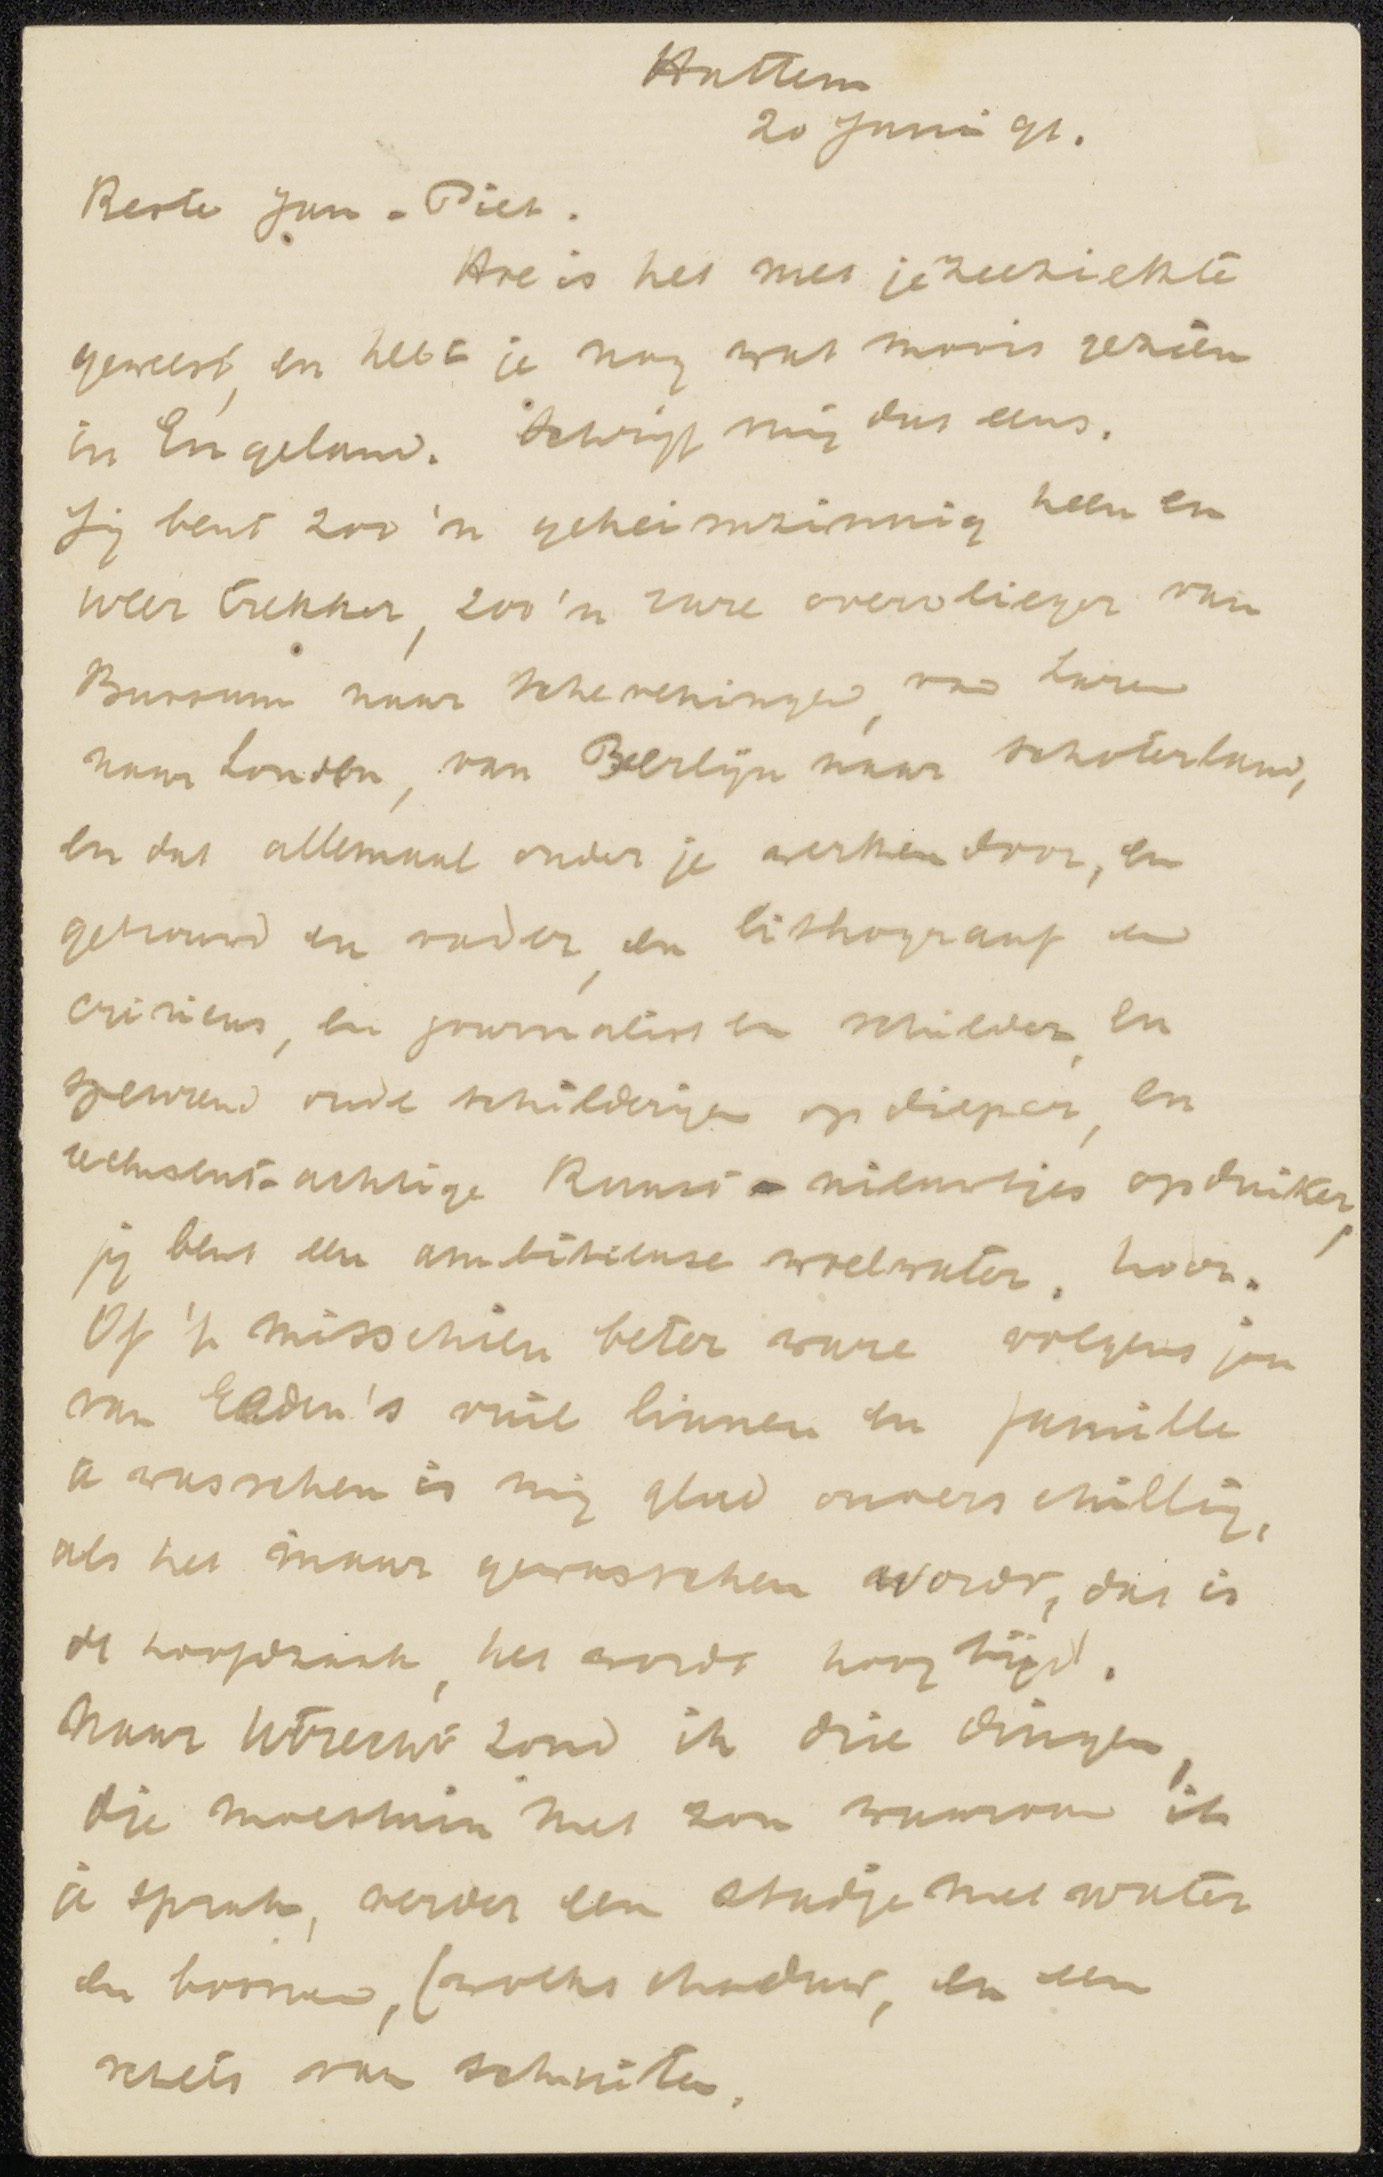 Hattem
20 Juni 91.
Beste Jan-Piet.
Hoe is het met je zeeziekte
geweest, en hebt je nog wat moois gezien
in Engeland. Schrijf mij dat eens.
Jij bent zoo'n geheimzinnig heen en
weer trekker, zoo'n rare overvlieger van
Bussum naar Scheveningen, van Laren
naar Londen, van Berlijn naar Schoterland,
en dat allemaal onder je werken door, en
getrouwd en vader, en lithograaf en
criticus, en journalist en schilder, en
speurend oude schilderijen opdieper, en
achtige Kunst-nieuwtjes opduiker,
jij bent een ambitieuse woelwater, hoor.
Of 't misschien beter ware volgens jou
van Eeden's vuil linnen en famille
te wasschen is mij glad onverschillig,
als het maar gewasschen wordt, dat is
de hoofdzaak, het wordt hoog tijd.
Naar Utrecht zond ik drie dingen,
die moestuin met zon waarvan ik
je sprak, verder een studje met water
en boomen, (wolkschaduw, en een
schets van schuiten.